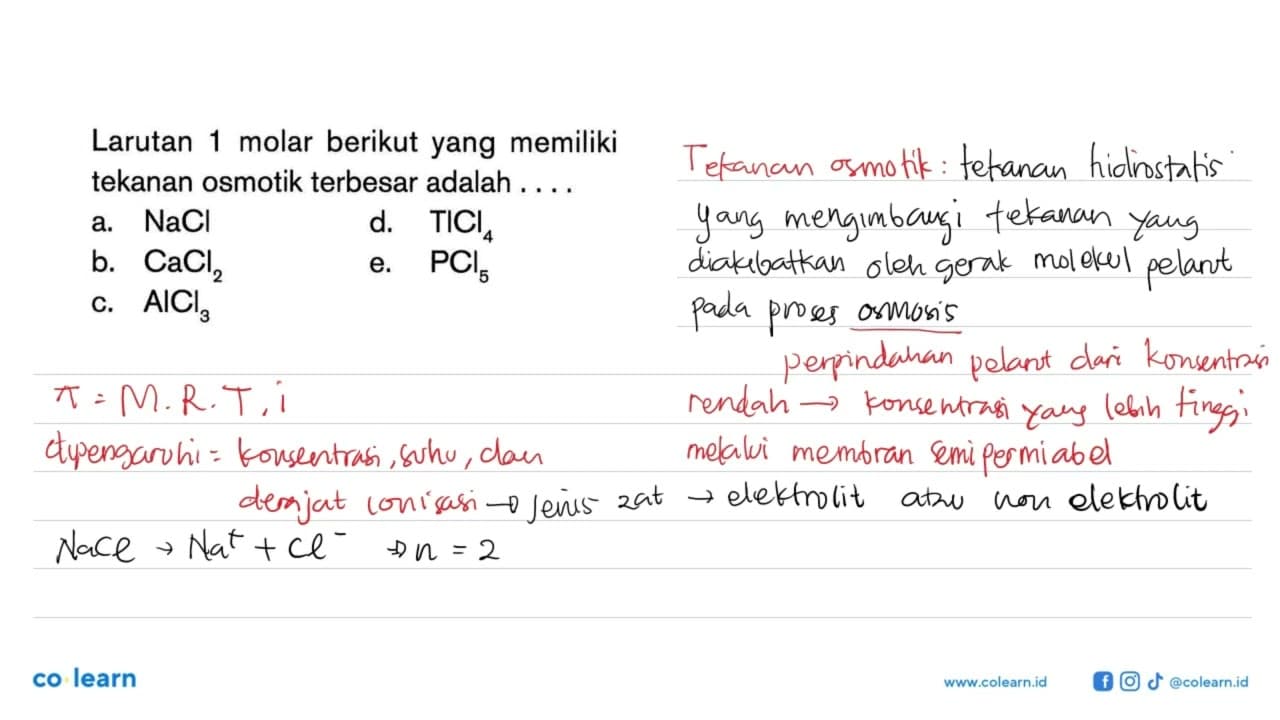 Larutan 1 molar berikut yang memiliki
tekanan osmotik terbesar adalah ....
a. NaCl d. TlCl4
b. CaCl2 e. PCl5
c. AlCl3
Tekanan osmotik : tekanan hidrostatis
yang mengimbangi tekanan yang
diakibatkan oleh gerak molekul pelarut
pada proses osmosis
perpindahan pelarut dari konsentrasi
rendah → konsentrasi yang lebih tinggi
melalui membran semipermiabel
π = M.R.T.i
dipengaruhi = konsentrasi, suhu, dan
derajat ionisasi → jenis zat → elektrolit atau non elektrolit
NaCl → Na+ + Cl- → n = 2
co learn
www.colearn.id @colearn.id